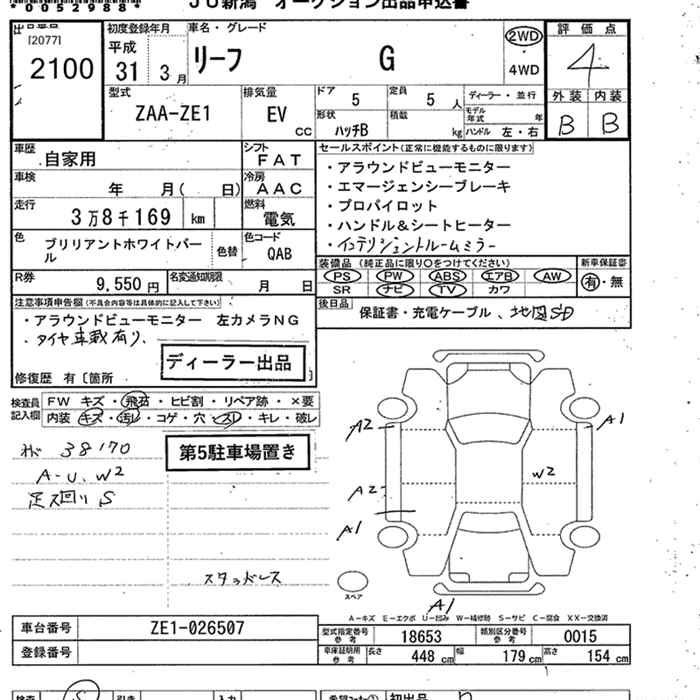 00529884
JU新潟 オークション出品申込書
[2077]
2100
初度登録年月
平成
31 3月
車名・グレード
リーフ G
2WD
・
4WD
評価点
4
外装 内装
B B
型式
ZAA-ZE1
排気量
EV
CC
ドア
5
定員
5 人
形状
ハッチB
積載
kg
ディーラー・並行
モデル年式 年
ハンドル 左・右
車歴
自家用
シフト
FAT
車検
年 月( 日)
冷房
AAC
走行
3万8千169 km
燃料
電気
色
ブリリアントホワイトパール
色替
色コード
QAB
R券
9,550円
名変通知期限
月 日
セールスポイント(正常に機能するものに限ります)
・アラウンドビューモニター
・エマージェンシーブレーキ
・プロパイロット
・ハンドル&シートヒーター
・インテリジェントルームミラー
装備品(純正品に限り○をつけてください)
PS PW ABS エアB AW
SR ナビ TV カワ
新車保証書
有・無
後日品
保証書・充電ケーブル、地図SD
注意事項申告欄(不具合内容等は具体的に記入して下さい)
・アラウンドビューモニター 左カメラNG
・タイヤ車載有り、
ディーラー出品
修復歴 有〔箇所 〕
検査員記入欄
FW キズ・飛石・ヒビ割・リペア跡・×要
内装 キズ・汚レ・コゲ・穴・スレ・キレ・破レ
38170
A-U、W2
足ス回リS
第5駐車場置き
スタッドレス
A2
A2
A1
A1
W2
A1
スペア
A-キズ E-エクボ U-凹み W-補修跡 S-サビ C-腐食 XX-交換済
車台番号
ZE1-026507
登録番号
型式指定番号
参考
18653
類別区分番号
参考
0015
車庫証明用
参考
長さ
448 cm
幅
179 cm
高さ
154 cm